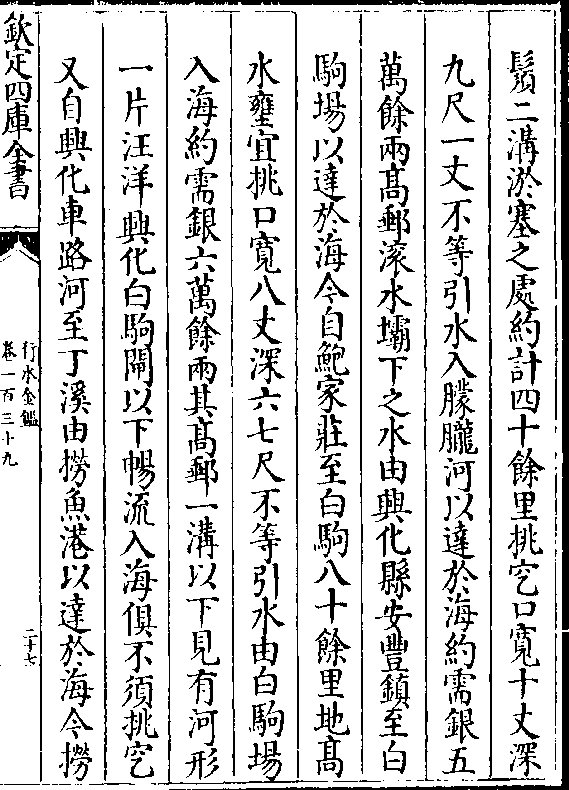 鬚二溝淤塞之處約計四十餘里挑穵口寬十丈深
九尺一丈不等引水入朦朧河以達於海約需銀五
萬餘兩髙郵滚水壩下之水由興化縣安豐鎮至白
駒場以達於海今自鮑家莊至白駒八十餘里地髙
水壅宜挑口寬八丈深六七尺不等引水由白駒場
入海約需銀六萬餘兩其髙郵一溝以下見有河形
一片汪洋興化白駒閘以下暢流入海俱不須挑穵
又自興化車路河至丁溪由撈魚港以達於海今撈
欽定四庫全書
行水金鑑
卷一百三十九
二十七